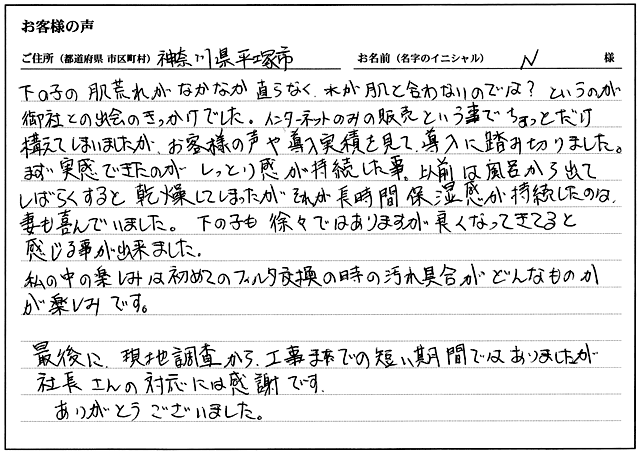 お客様の声
ご住所（都道府県 市区町村） 神奈川県平塚市 お名前（名字のイニシャル） N 様
下の子の肌荒れがなかなか直らなく、水が肌と合わないのでは？というのが
御社との出会のきっかけでした。インターネットのみの販売という事でちょっとだけ
構えてしまいましたが、お客様の声や導入実績を見て、導入に踏み切りました。
まず実感できたのが しっとり感が持続した事。以前は風呂から出て
しばらくすると乾燥してしまったが それが長時間保湿感が持続したのは、
妻も喜んでいました。 下の子も 徐々ではありますが良くなってきてると
感じる事が出来ました。
私の中の楽しみは初めてのフィルタ交換の時の汚れ具合がどんなものか
が楽しみです。
最後に、現地調査から、工事までの短い期間ではありましたが
社長さんの対応には感謝です。
ありがとうございました。